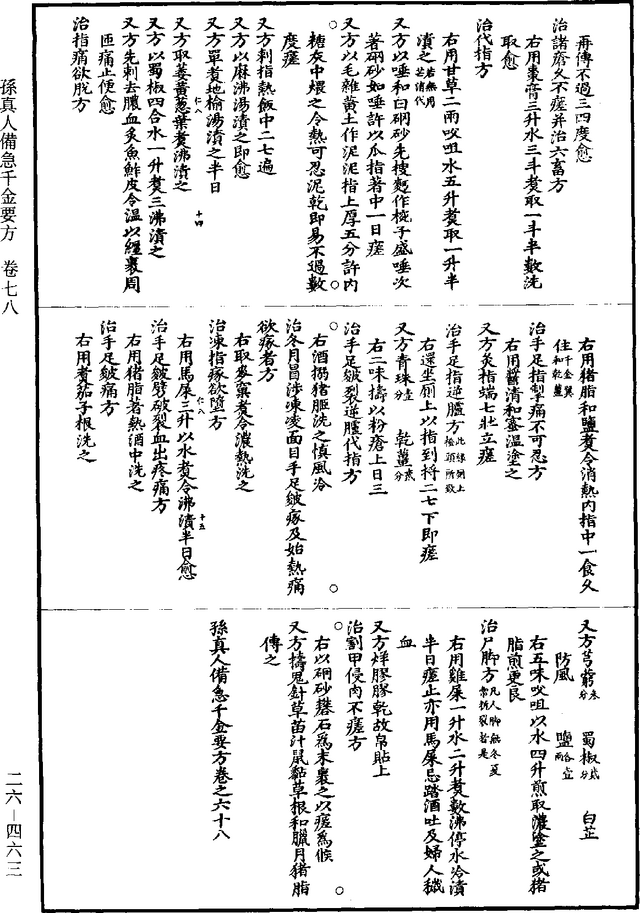 再傅不過三四度愈
治諸瘡久不瘥并治六畜方
右用棗膏三升水三斗煑取一斗半數洗
取愈
治代指方
右用甘草二兩㕮咀水五升煑取一升半
漬之若無用芒消代
又方以唾和白硇砂先搜麪作椀子盛唾次
著硇砂如唾許以瓜指著中一日瘥
又方以毛雄黃土作泥泥指上厚五分許内
糖灰中煨之令熱可忍泥乾即易不過數
度瘥
又方刺指熱飯中二七遍
又方以麻沸湯漬之即愈
又方單煑地榆湯漬之半日
又方取萎黃葱葉煑沸漬之
又方以蜀椒四合水一升煑三沸漬之
又方先刺去膿血炙魚鮓皮令温以纏裹周
匝痛止便愈
治指痛欲脱方
右用猪脂和鹽煑令消熱内指中一食久
住千金翼和乾薑
治手足指掣痛不可忍方
右用醬清和蜜温塗之
又方灸指端七壯立瘥
治手足指逆臚方
右還坐厠上以指到捋二七下即瘥
又方青珠壹分 乾薑貳分
右二味擣以粉瘡上日三
治手足皴裂逆臚代指方
右酒挼猪胵洗之慎風冷
治冬月冒涉凍凌面目手足皴瘃及始熱痛
欲瘃者方
右取麥窠煑令濃熱洗之
治凍指瘃欲墮方
右用馬屎三升以水煑令沸漬半日愈
治手足皴劈破裂血出疼痛方
右用猪脂著熱酒中洗之
治手足皴痛方
右用煑茄子根洗之
又方芎藭 蜀椒貳分 白芷
防風 鹽各壹兩
右五味㕮咀以水四升煎取濃塗之或猪
脂煎更良
治尸脚方凡人脚無冬夏常拆裂者是
右用雞屎一升水二升煑數沸停水冷漬
半日瘥止亦用馬屎忌踏酒吐及婦人穢
血
又方烊膠膠乾故帛貼上
治割甲侵肉不瘥方
右以硇砂礬石爲末裹之以瘥爲候
又方擣鬼針草苗汁鼠黏草根和臘月猪脂
傅之
孫真人備急千金要方卷之六十八
孫真人備急千金要方 卷七八
二六－四六三